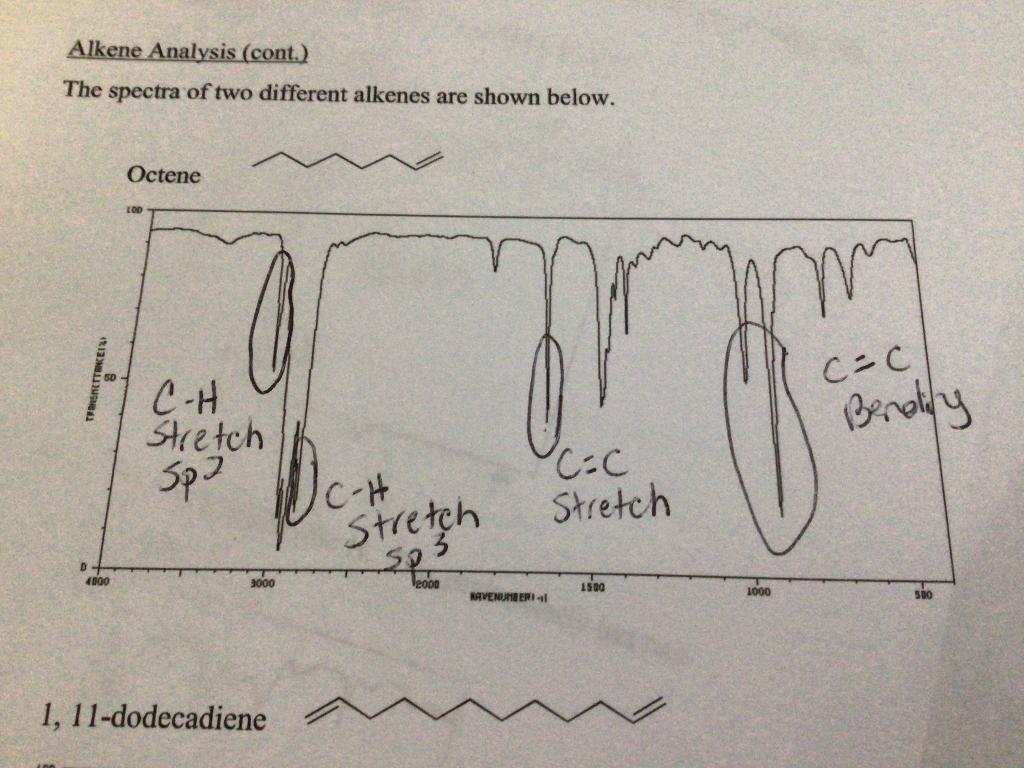 Alkene Analysis (cont.)
The spectra of two different alkenes are shown below.
Octene
100
TRANSMITTANCE(%)
50
0
C-H
Stretch
sp2
C-H
Stretch
sp3
C=C
Stretch
C=C
Bending
4000
3000
2000
1500
1000
500
1, 11-dodecadiene
100